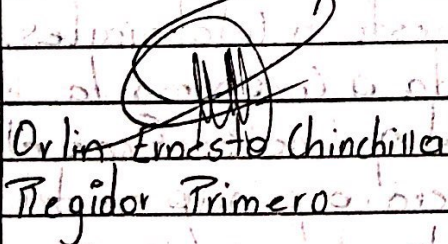 Orlin Ernesto Chinchilla
Regidor Primero